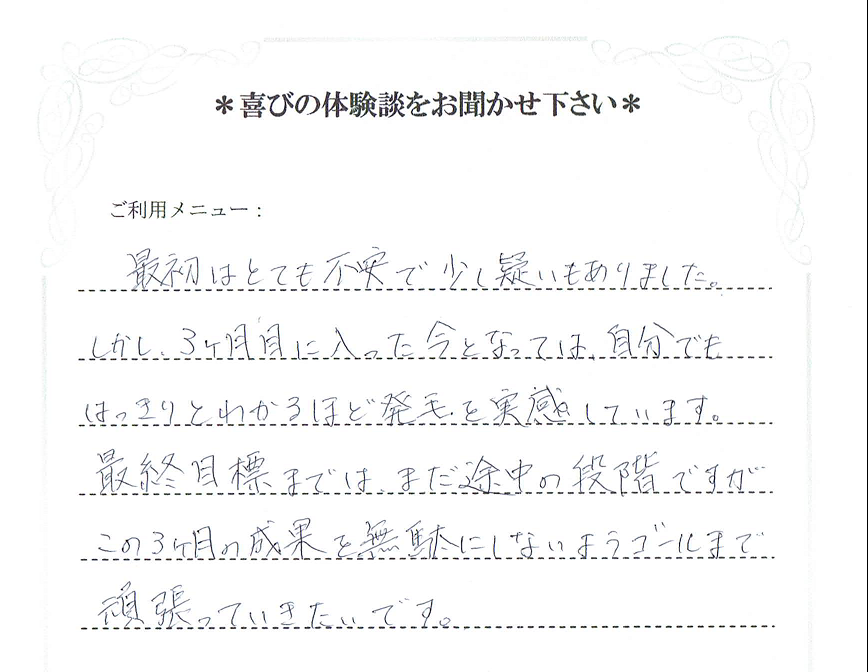 ＊喜びの体験談をお聞かせ下さい＊
ご利用メニュー：
最初はとても不安で少し疑いもありました。
しかし、3ヶ月目に入った今となっては、自分でも
はっきりとわかるほど発毛を実感しています。
最終目標までは、まだ途中の段階ですが
この3ヶ月の成果を無駄にしないようゴールまで
頑張っていきたいです。